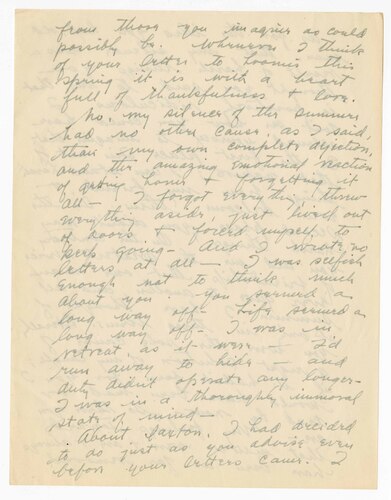 from those you imagine as could
possibly be. Whenever I think
of your letter to Loomis this
spring it is with a heart
full of thankfulness & love.
No, my silence of the summer
had no other cause, as I said,
than my own complete dejection,
and the amazing emotional reaction
of getting home & forgetting it
all — I forgot everything, threw
everything aside, just lived out
of doors & forced myself to
keep going — And I wrote no
letters at all — I was selfish
enough not to think much
about you. You seemed a
long way off — Life seemed a
long way off — I was in
retreat, as it were — I'd
run away to hide — and
duty didn't operate any longer —
I was in a thoroughly immoral
state of mind —
About I had decided
to do just as you advise even
before your letters came. I